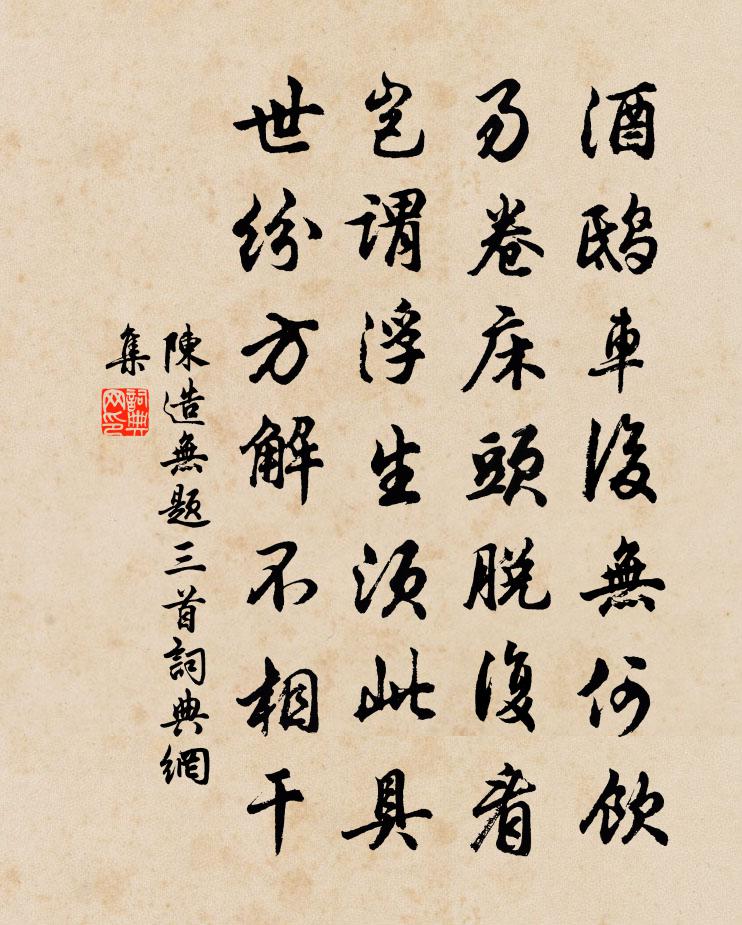 酒鴟車後無何飲
易卷床頭脱復看
豈謂浮生須此具
世紛方解不相干
陳造無題三首詞典網
集
詞典
网印